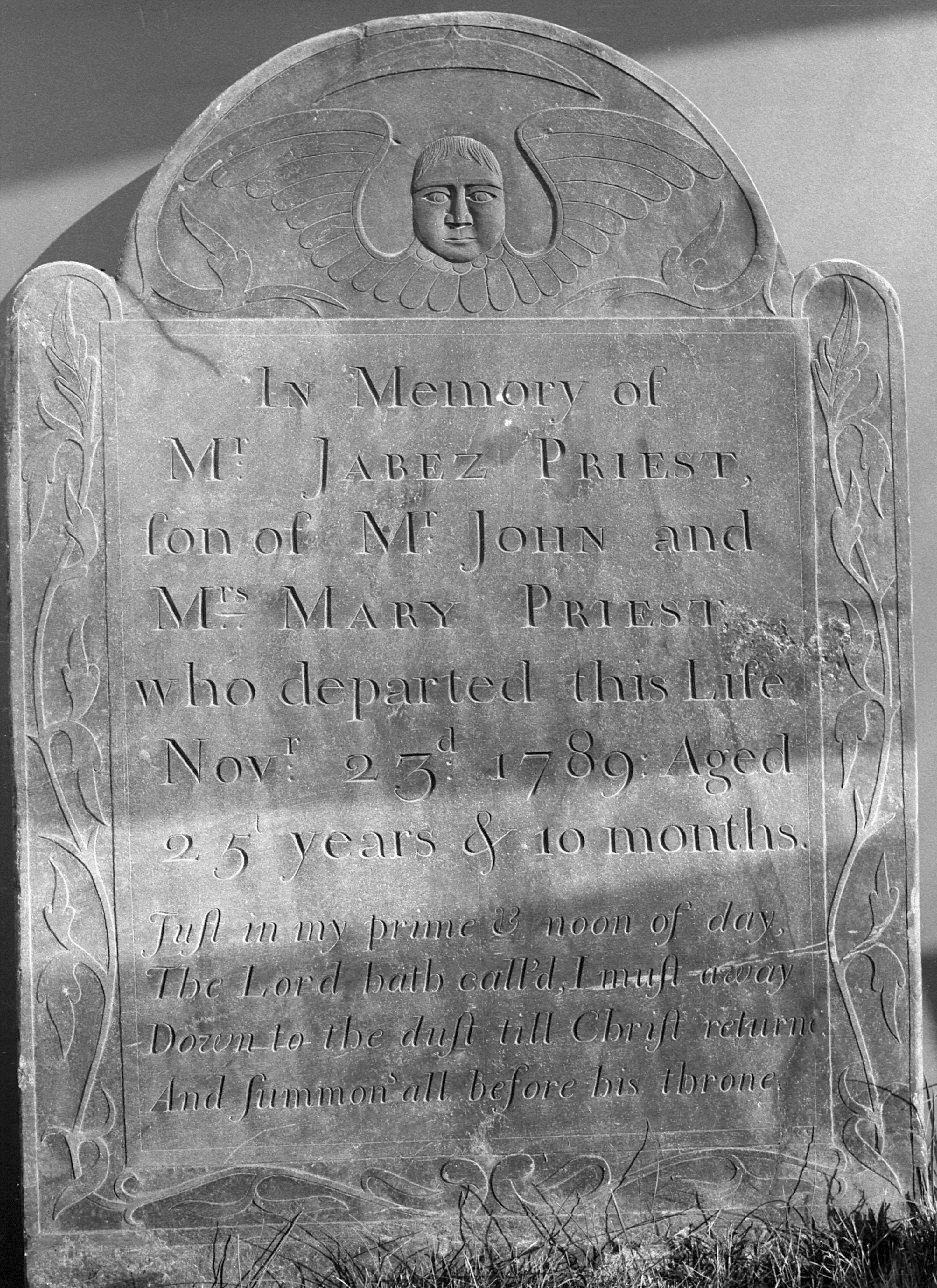 In Memory of
Mr. Jabez Priest,
ſon of Mr. John and
Mrs. Mary Priest,
who departed this Life
Novr. 23d. 1789: Aged
25 years & 10 months.
Juſt in my prime & noon of day,
The Lord hath call'd, I muſt away
Down to the duſt till Chriſt return
And ſummon all before his throne.